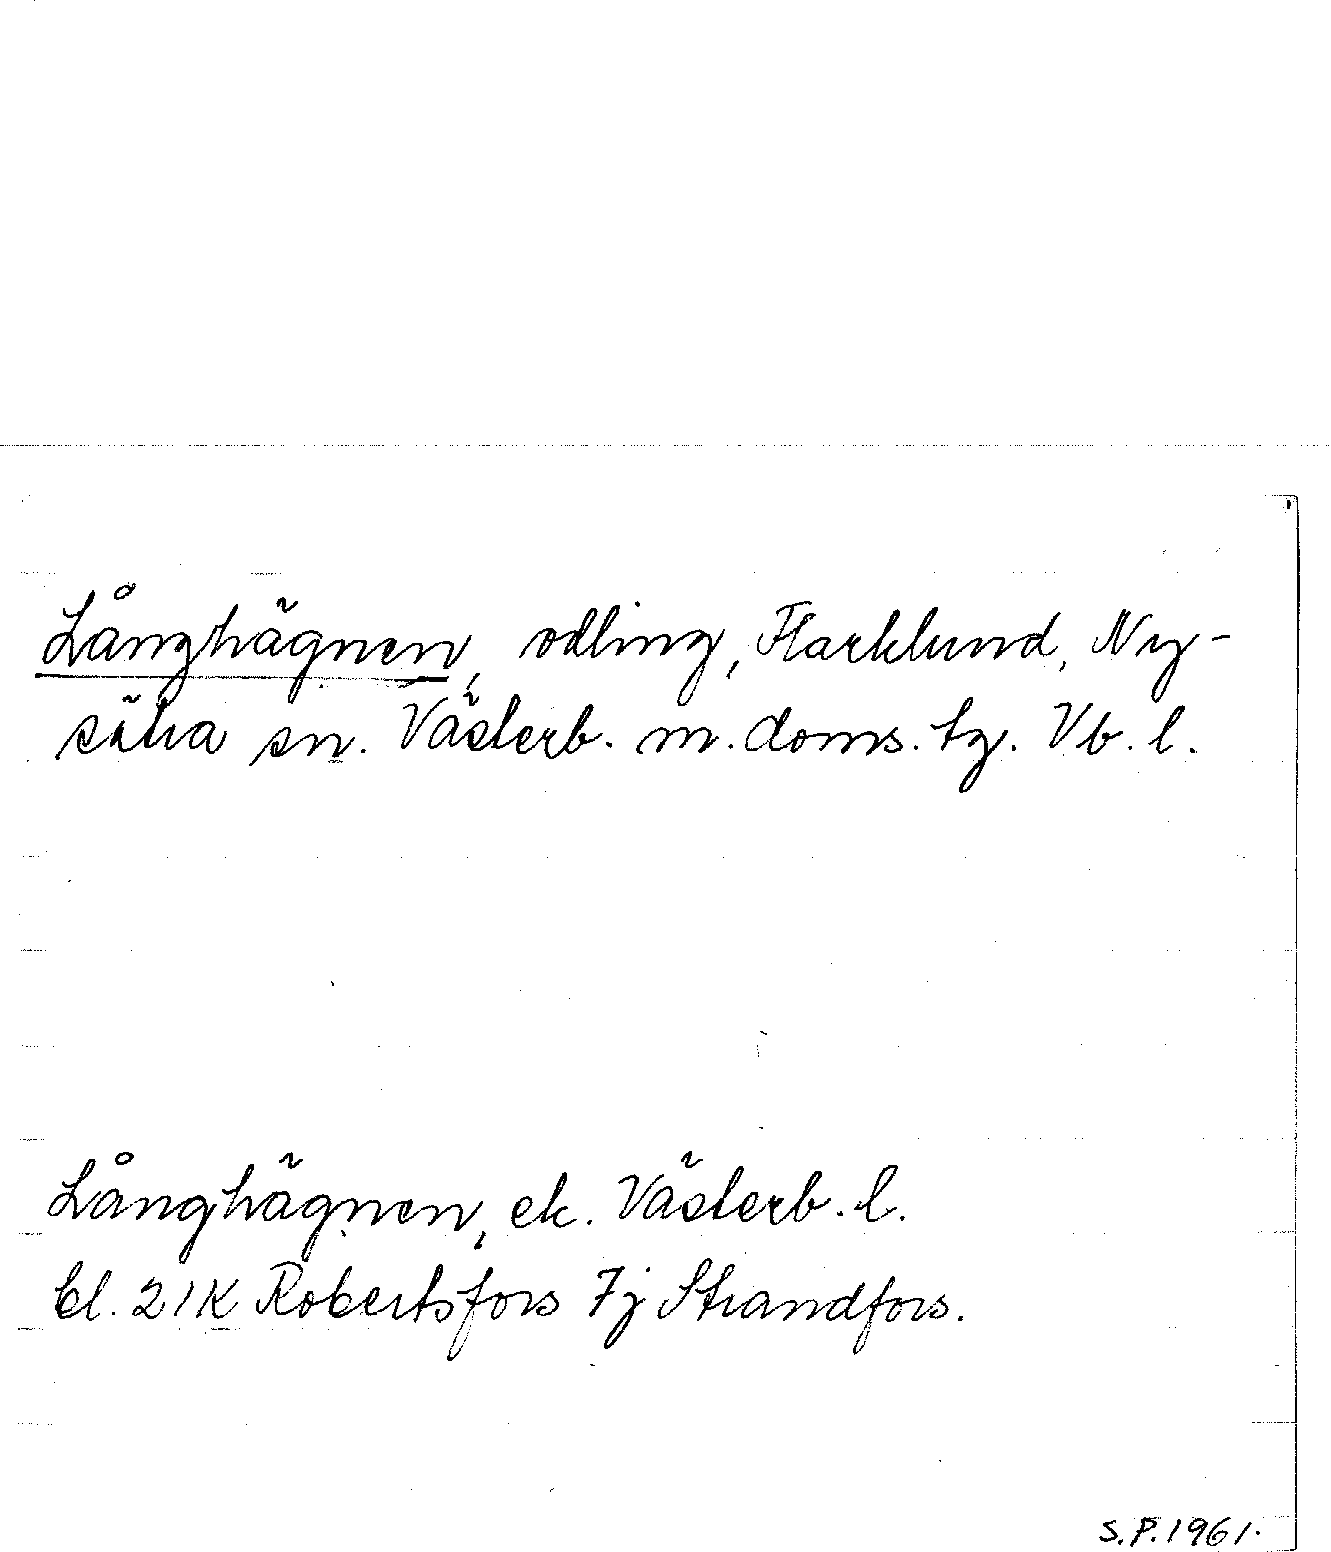 Långhägnen, odling, Flarklund, Ny-
sätra sn. Västerb. m. doms. tg. Vb. l.
Långhägnen, ek. Västerb. l.
bl. 21K Robertsfors 7j Strandfors.
S.P. 1961.